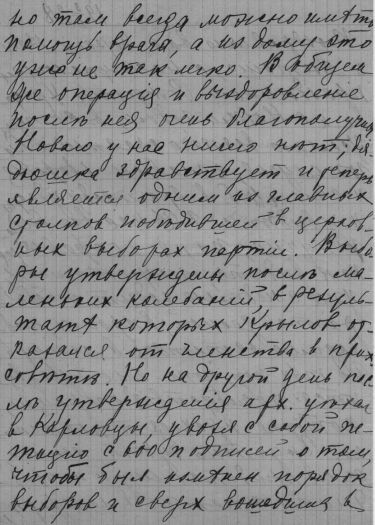 но там всегда можно имѣть
помощь врача, а на дому это
уже не так легко. В общем
же операцiя и выздоровленiе
послѣ нея очень благополучны.
Новаго у нас ничего нѣт; дя-
дюшка здравствует и теперь
является одним из главных
столпов победившей в церков-
ных выборах партiи. Выбо-
ры утверждены послѣ ма-
леньких колебанiй, в резуль-
татѣ которых Крылов от-
казался от членства в прих.
совѣтѣ. Но на другой день пос-
лѣ утвержденiя арх. уѣхал
в Карловцы, увозя с собой пе-
тицiю с 600 подписей о том,
чтобы был измѣнен порядок
выборов и сверх вошедших в